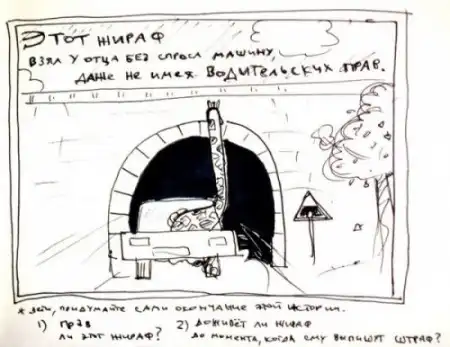 Этот жираф
взял у отца без спроса машину,
даже не имея водительских прав.
* дети, придумайте сами окончание этой истории.
1) прав 2) доживёт ли жираф
ли этот жираф? до момента, когда ему выпишут штраф?